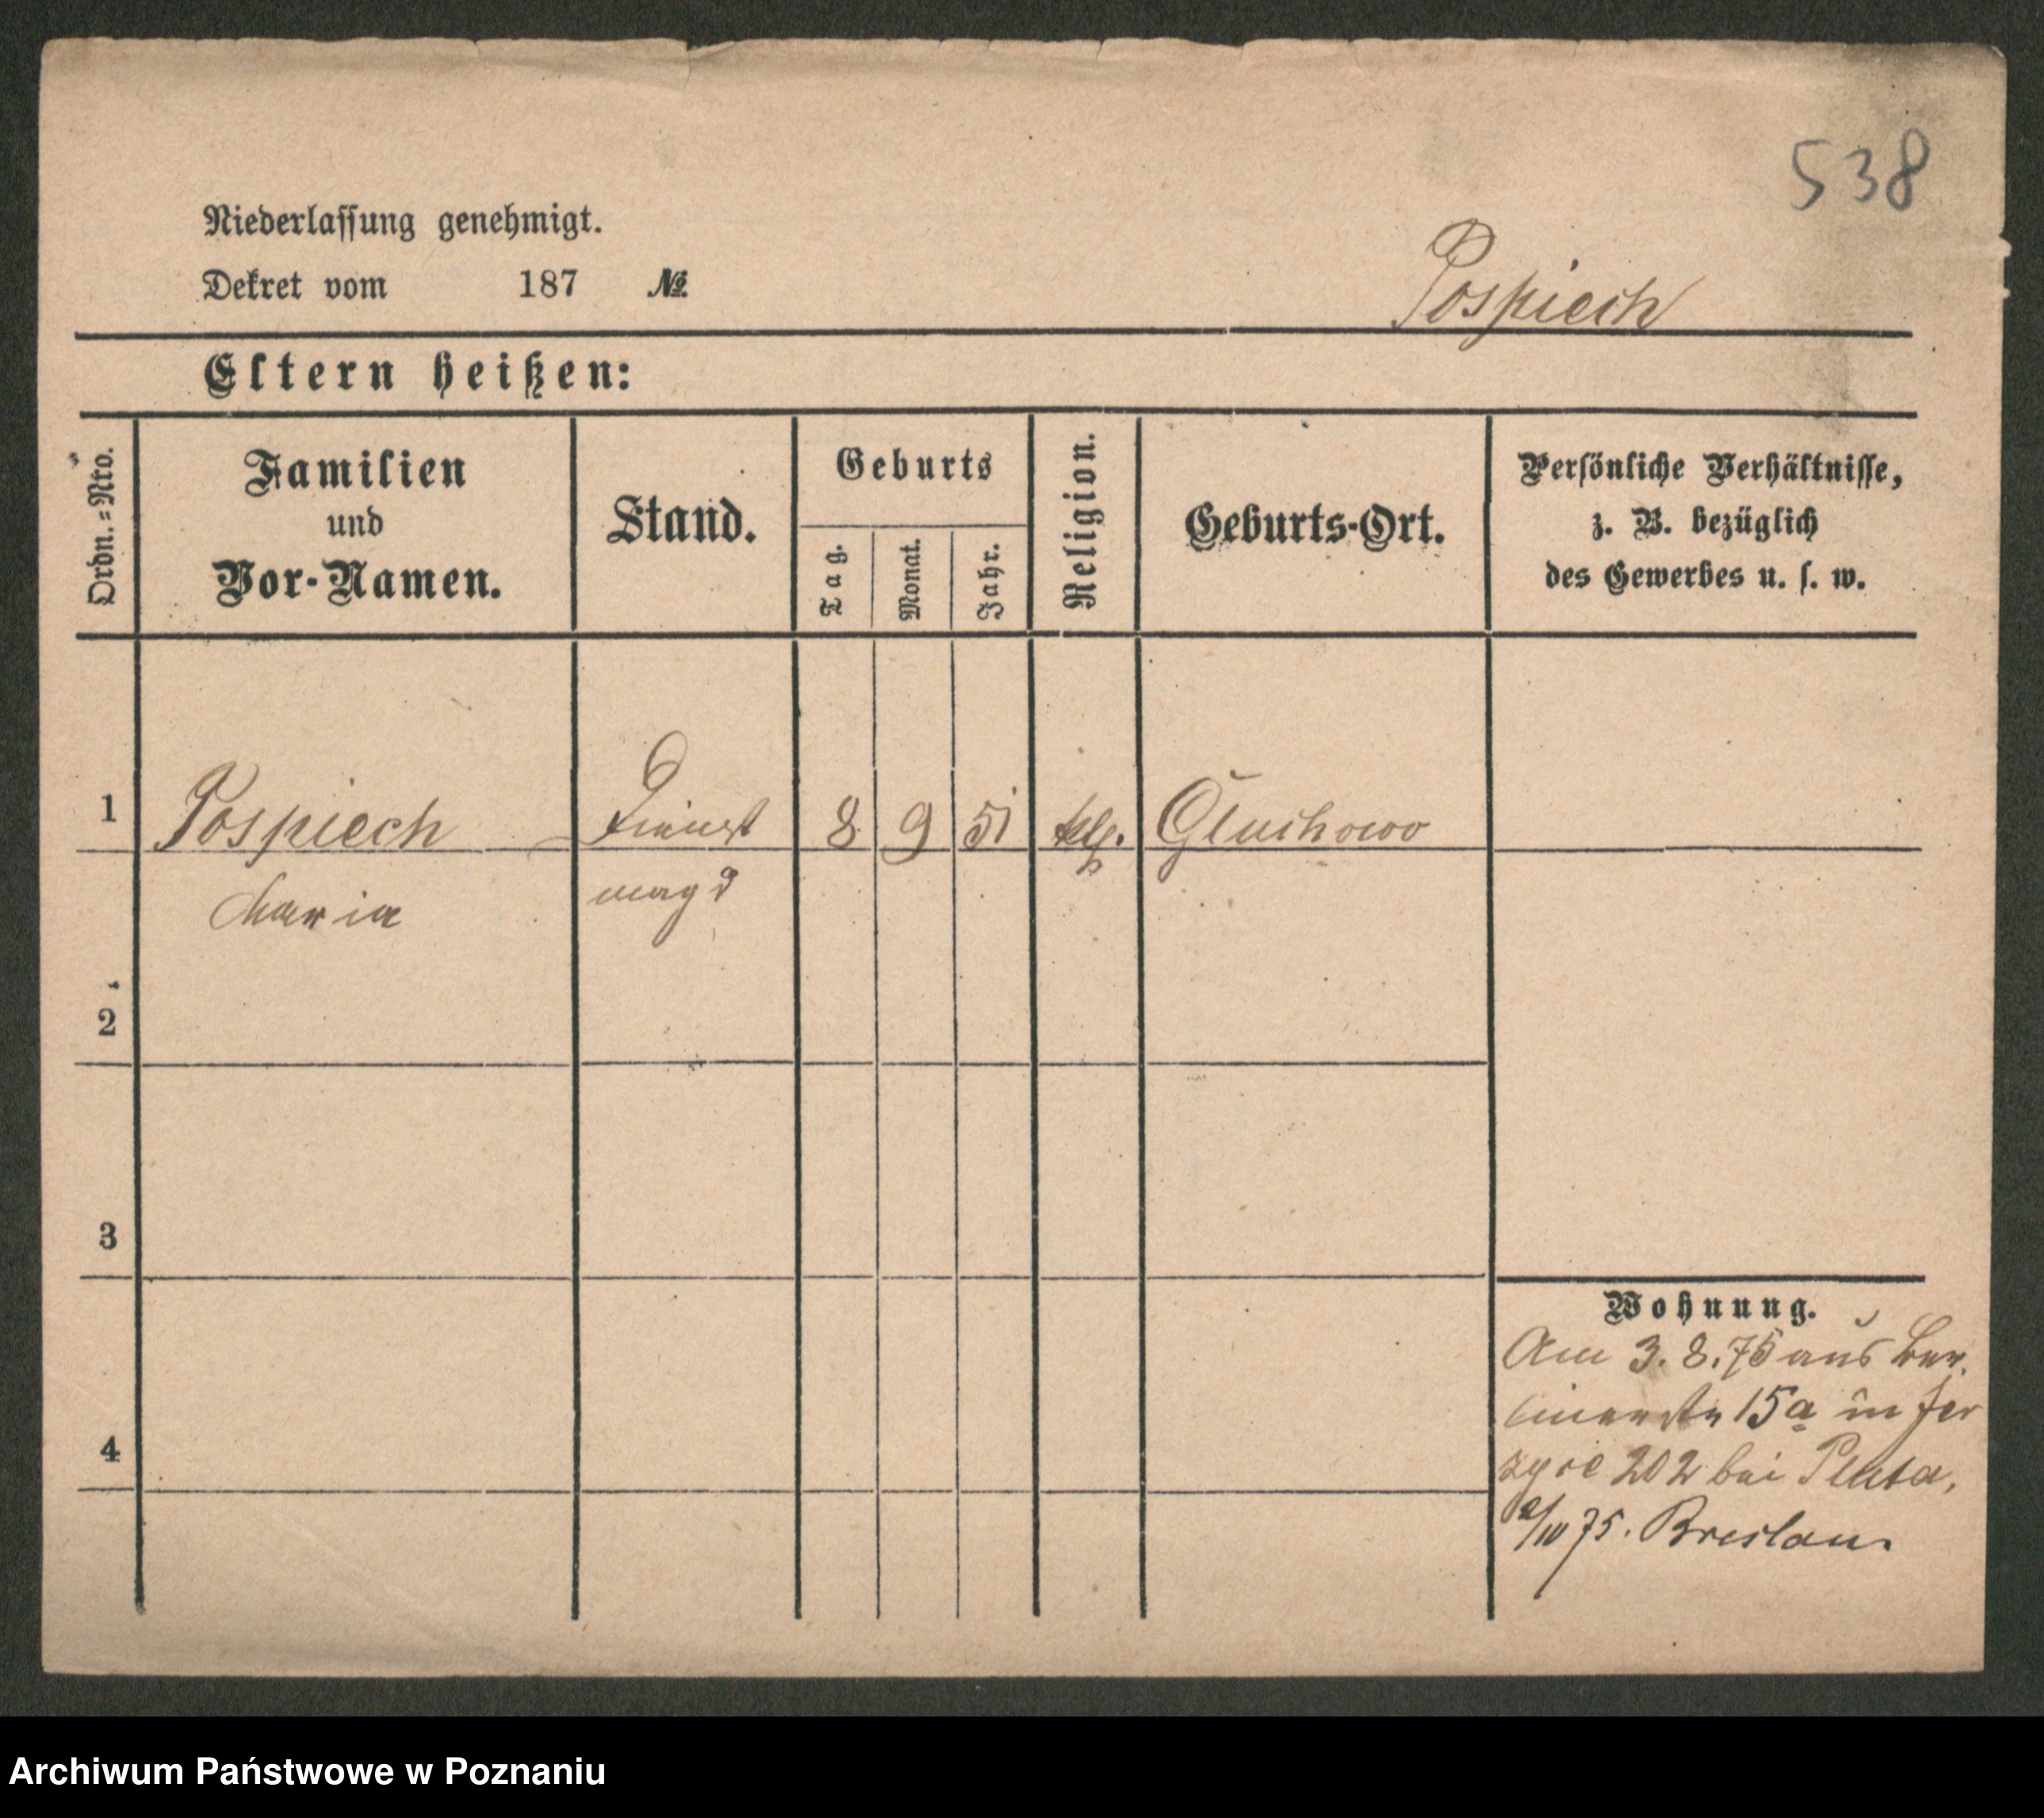 538
Niederlassung genehmigt.
Dekret vom 187 №
Pospiech
Eltern heißen:
Ordn.=Nro.
Familien
und
Vor-Namen.
Stand.
Geburts
Tag.
Monat.
Jahr.
Religion.
Geburts-Ort.
Persönliche Verhältnisse,
z. B. bezüglich
des Gewerbes u. s. w.
1 Pospiech Dienst 8 9 51 Gluchowo
Maria magd
2
3
4
Wohnung.
Am 3. 8. 75 aus Ber
linerstr 15a in Jer
zyce 202 bei Pluta,
75. Breslau.
Archiwum Państwowe w Poznaniu